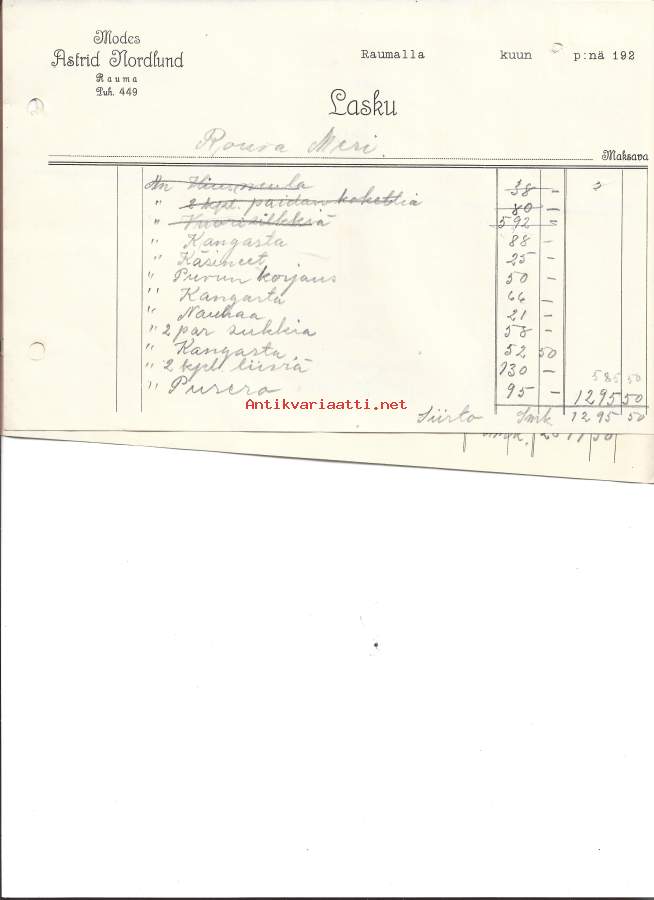 Modes
Astrid Nordlund
Rauma
Puh. 449
Raumalla kuun p:nä 192
Lasku
Rouva Meri.
Maksava
An Hiusneula 38 –
" 2 kpl. paidan kokettia 80 –
" Vuorisilkkiä 592 –
" Kangasta 88 –
" Käsineet 25 –
" Puvun korjaus 50 –
" Kangasta 66 –
" Nauhaa 21 –
" 2 par sukkia 58 –
" Kangasta 52 50
" 2 kpl. liiviä 130 –
585 50
" Pusero 95 – 1295 50
Antikvariaatti.net
Siirto Smk 1295 50